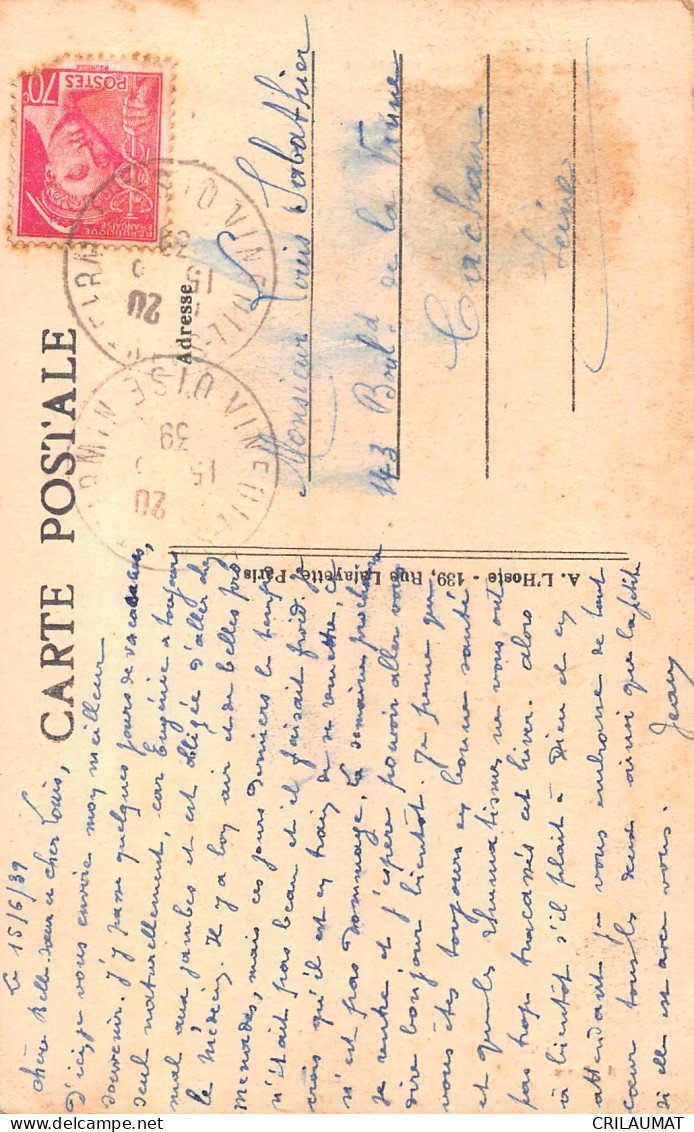 CARTE POSTALE
Adresse
70c
POSTES
REPUBLIQUE
FRANÇAISE
20
15
39
20
15
39
Monsieur Louis Sabathier
143 Boul.d de la Vanne
Cachan
Seine
A. L'Hoste - 139, Rue Lafayette, Paris
le 15/6/39
Chère Belle-sœur et cher Louis,
D'ici, je vous envoie mon meilleur
souvenir. J'y passe quelques jours de vacances,
seul naturellement, car Eugénie a toujours
mal aux jambes et est obligée d'aller chez
le médecin. Il y a bon air et de belles pro
menades, mais ces jours derniers le temps
n'était pas beau et il faisait froid. Je
crois qu'il est en train de se remettre, ce
n'est pas dommage. La semaine prochaine
je rentre et j'espère pouvoir aller vous
dire bonjour bientôt. Je pense que
vous êtes toujours en bonne santé
et que les rhumatismes ne vous ont
pas trop tracassés cet hiver. Alors
à bientôt s'il plaît à Dieu et en
attendant je vous embrasse de tout
cœur tous les deux ainsi que la petite
si elle est avec vous.
Jean
CRILAUMAT